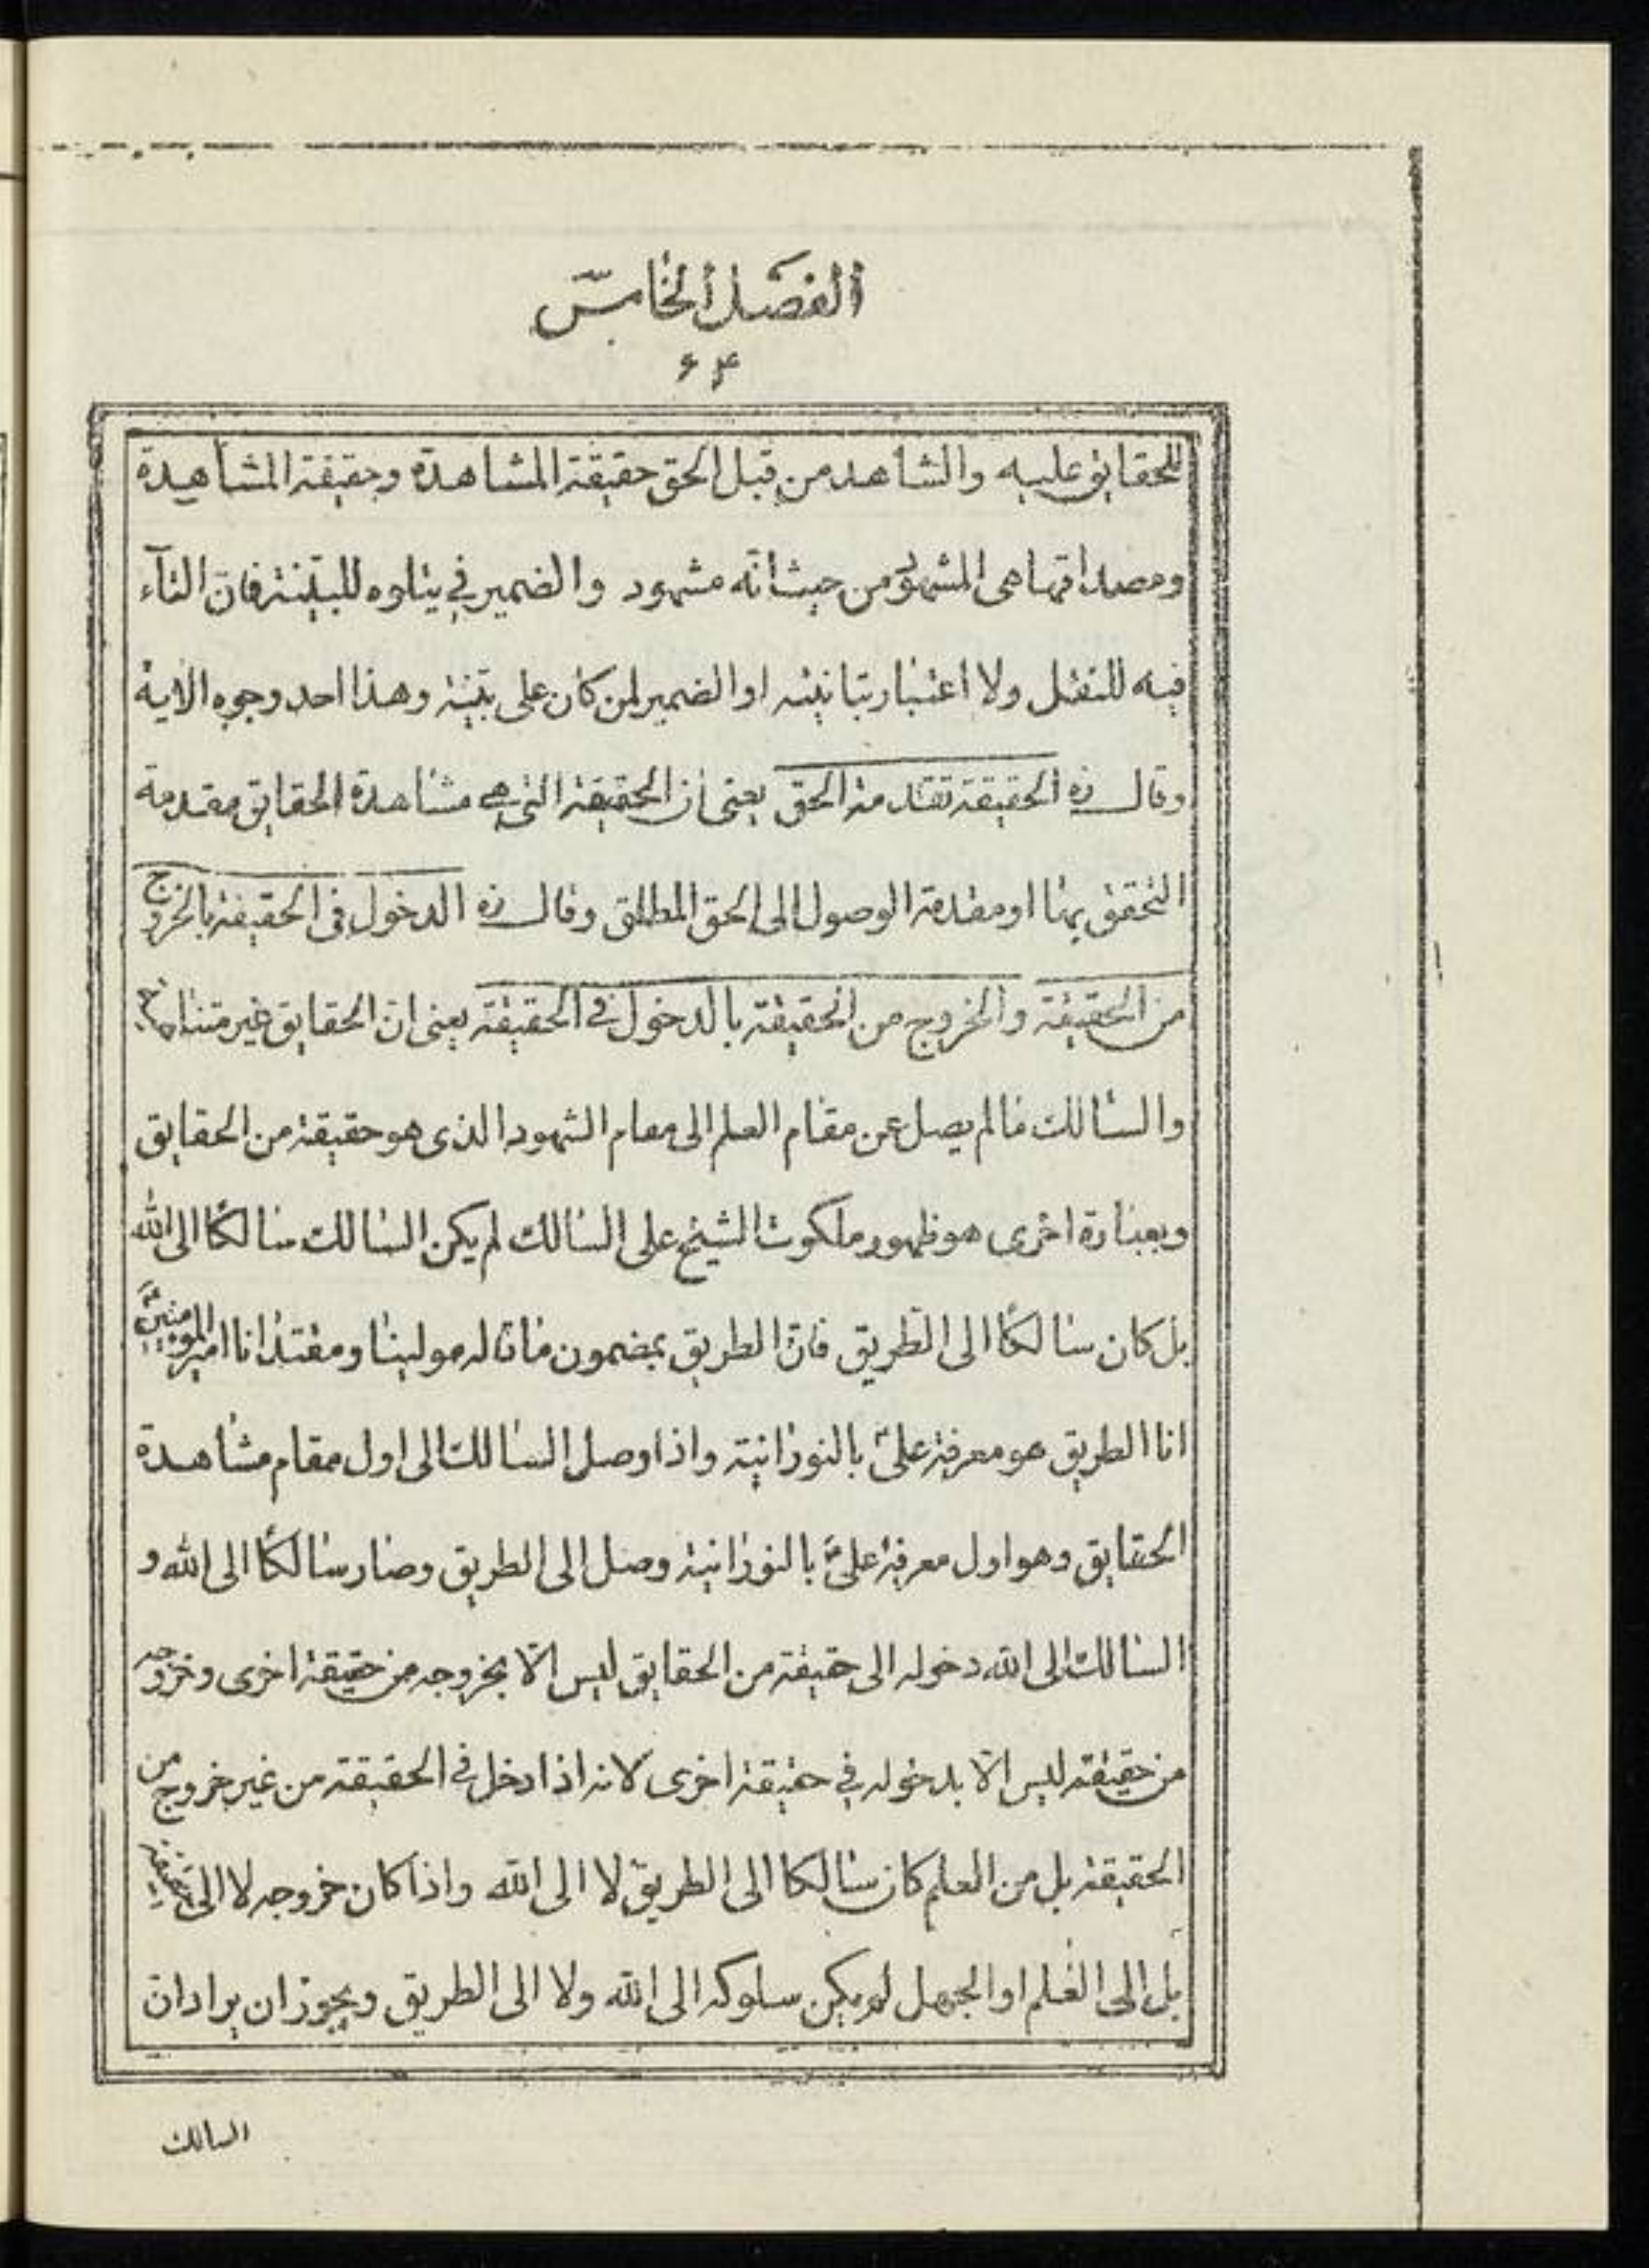 الفصل الخامس
۶۴
للحقايق عليه والشاهد من قبل الحق حقيقة المشاهدة وحقيقة المشاهدة
ومصداقها هى المشهود من حيث انّه مشهود والضمير في يتلوه للبيّنة فانّ التآء
فيه للنقل ولا اعتبار بتانيثه او الضمير لمن كان على بيّنة وهذا احد وجوه الاية
وقال ره الحقيقة تقدمة الحق يعنى ان الحقيقة التى هى مشاهدة الحقايق مقدمة
التحقق بها او مقدمة الوصول الى الحق المطلق وقال ره الدخول فى الحقيقة بالخروج
من الحقيقة والخروج من الحقيقة بالدخول في الحقيقة يعنى ان الحقايق غير متناهية
والسالك ما لم يصل عن مقام العلم الى مقام الشهود الذى هو حقيقة من الحقايق
وبعبارة اخرى هو ظهور ملكوت الشيخ على السالك لم يكن السالك سالكًا الى الله
بل كان سالكًا الى الطّريق فانّ الطريق بمضمون ما قاله مولينا ومقتدانا امير المومنينؑ
انا الطريق هو معرفة علىؑ بالنورانية واذا وصل السالك الى اول مقام مشاهدة
الحقايق وهو اول معرفة علىؑ بالنورانية وصل الى الطريق وصار سالكًا الى الله و
السالك الى الله دخوله الى حقيقة من الحقايق ليس الّا بخروجه من حقيقة اخرى وخروجه
من حقيقة ليس الّا بدخوله في حقيقة اخرى لانه اذا دخل في الحقيقة من غير خروج من
الحقيقة بل من العلم كان سالكا الى الطريق لا الى الله واذا كان خروجه لا الى حقيقة
بل الى العلم او الجهل لم يكن سلوكه الى الله ولا الى الطريق ويجوز ان يراد ان
السالك